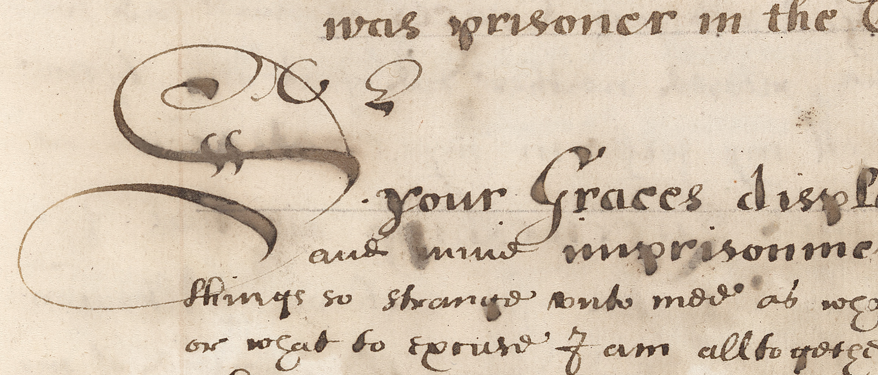 was prisoner in the
Sr
your Graces displ
and mine imprisonme
things so strange unto mee as wha
or what to excuse I am alltogethe